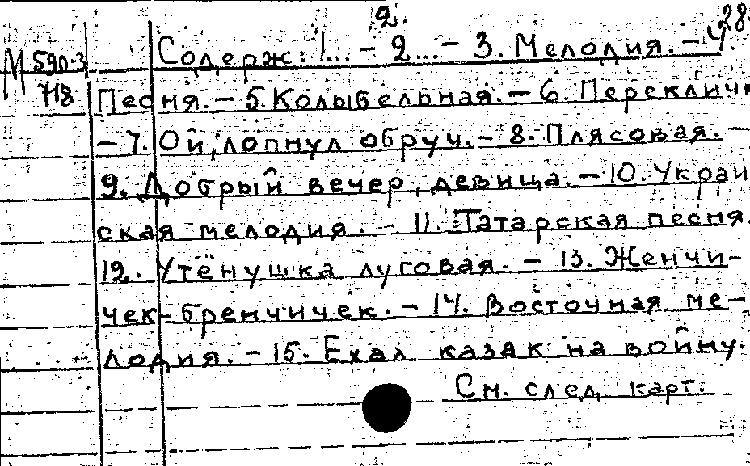 2.
28
Содерж: 1... – 2... – 3. Мелодия. – 4.
М 590-3
718
Песня. – 5. Колыбельная. – 6. Переклич
– 7. Ой, лопнул обруч. – 8. Плясовая. –
9. Добрый вечер, девица. – 10. Украи
ская мелодия. – 11. Татарская песня.
12. Утёнушка луговая. – 13. Женчи-
чек-бренчичек. – 14. Восточная ме-
лодия. – 15. Ехал казак на войну.
См. след. карт.